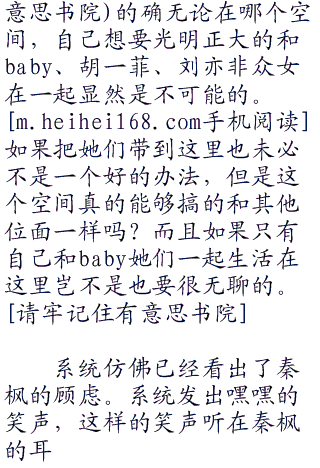 意思书院)的确无论在哪个空
间，自己想要光明正大的和
baby、胡一菲、刘亦非众女
在一起显然是不可能的。
[m.heihei168.com手机阅读]
如果把她们带到这里也未必
不是一个好的办法，但是这
个空间真的能够搞的和其他
位面一样吗？而且如果只有
自己和baby她们一起生活在
这里岂不是也要很无聊的。
[请牢记住有意思书院]
系统仿佛已经看出了秦
枫的顾虑。系统发出嘿嘿的
笑声，这样的笑声听在秦枫
的耳